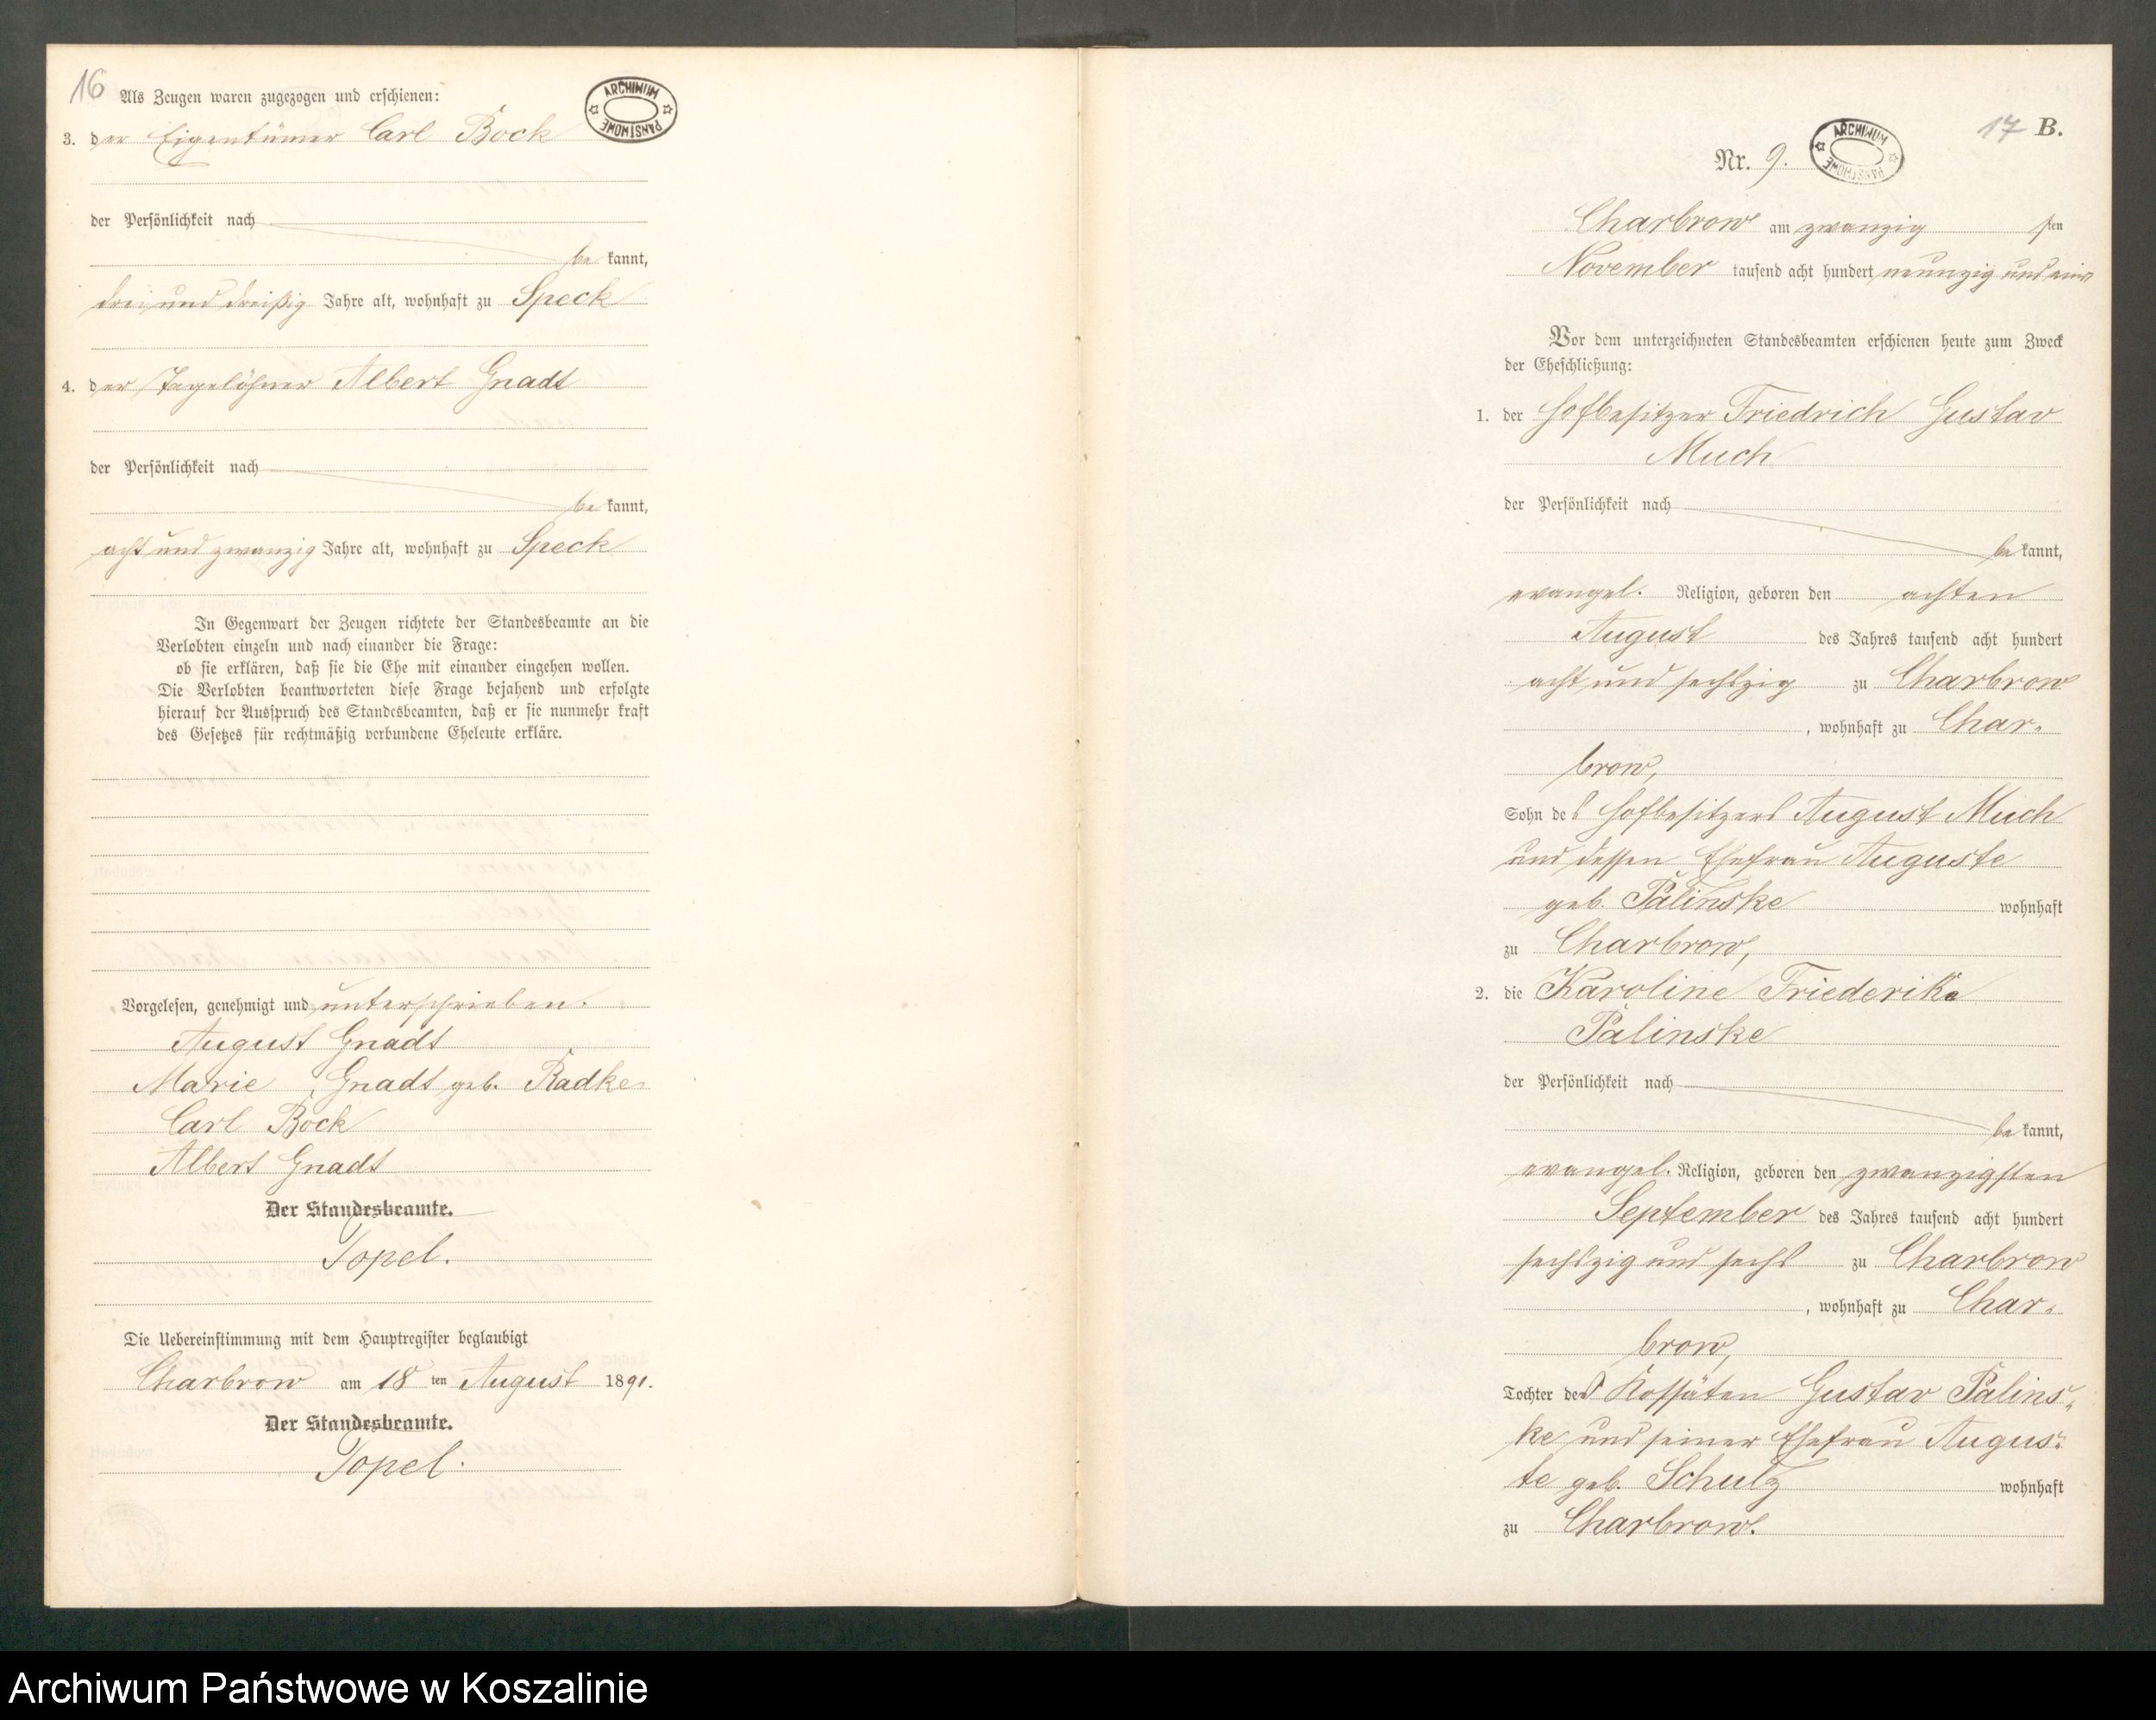 16
Als Zeugen waren zugezogen und erschienen:
ARCHIWUM PAŃSTWOWE
3. der Eigentümer Carl Bock
der Persönlichkeit nach
be kannt,
drei und dreißig Jahre alt, wohnhaft zu Speck
4. der Tagelöhner Albert Gnadt
der Persönlichkeit nach
be kannt,
acht und zwanzig Jahre alt, wohnhaft zu Speck
In Gegenwart der Zeugen richtete der Standesbeamte an die
Verlobten einzeln und nach einander die Frage:
ob sie erklären, daß sie die Ehe mit einander eingehen wollen.
Die Verlobten beantworteten diese Frage bejahend und erfolgte
hierauf der Ausspruch des Standesbeamten, daß er sie nunmehr kraft
des Gesetzes für rechtmäßig verbundene Eheleute erkläre.
Vorgelesen, genehmigt und unterschrieben.
August Gnadt
Marie Gnadt geb. Radke
Carl Bock
Albert Gnadt
Der Standesbeamte.
Topel.
Die Uebereinstimmung mit dem Hauptregister beglaubigt
Charbrow am 18 ten August 1891.
Der Standesbeamte.
Topel.
17 B.
Nr. 9.
ARCHIWUM PAŃSTWOWE
Charbrow am zwanzig sten
November tausend acht hundert neunzig und eins
Vor dem unterzeichneten Standesbeamten erschienen heute zum Zweck
der Eheschließung:
1. der Hofbesitzer Friedrich Gustav
Much
der Persönlichkeit nach
be kannt,
evangel. Religion, geboren den achten
August des Jahres tausend acht hundert
acht und sechszig zu Charbrow
, wohnhaft zu Char-
brow,
Sohn des Hofbesitzers August Much
und dessen Ehefrau Auguste
geb. Palinske wohnhaft
zu Charbrow,
2. die Karoline Friederike
Palinske
der Persönlichkeit nach
be kannt,
evangel. Religion, geboren den zwanzigsten
September des Jahres tausend acht hundert
sechszig und sechs zu Charbrow
, wohnhaft zu Char-
brow,
Tochter des Kossäten Gustav Palins-
ke und seiner Ehefrau Augus-
te geb. Schulz wohnhaft
zu Charbrow.
Archiwum Państwowe w Koszalinie